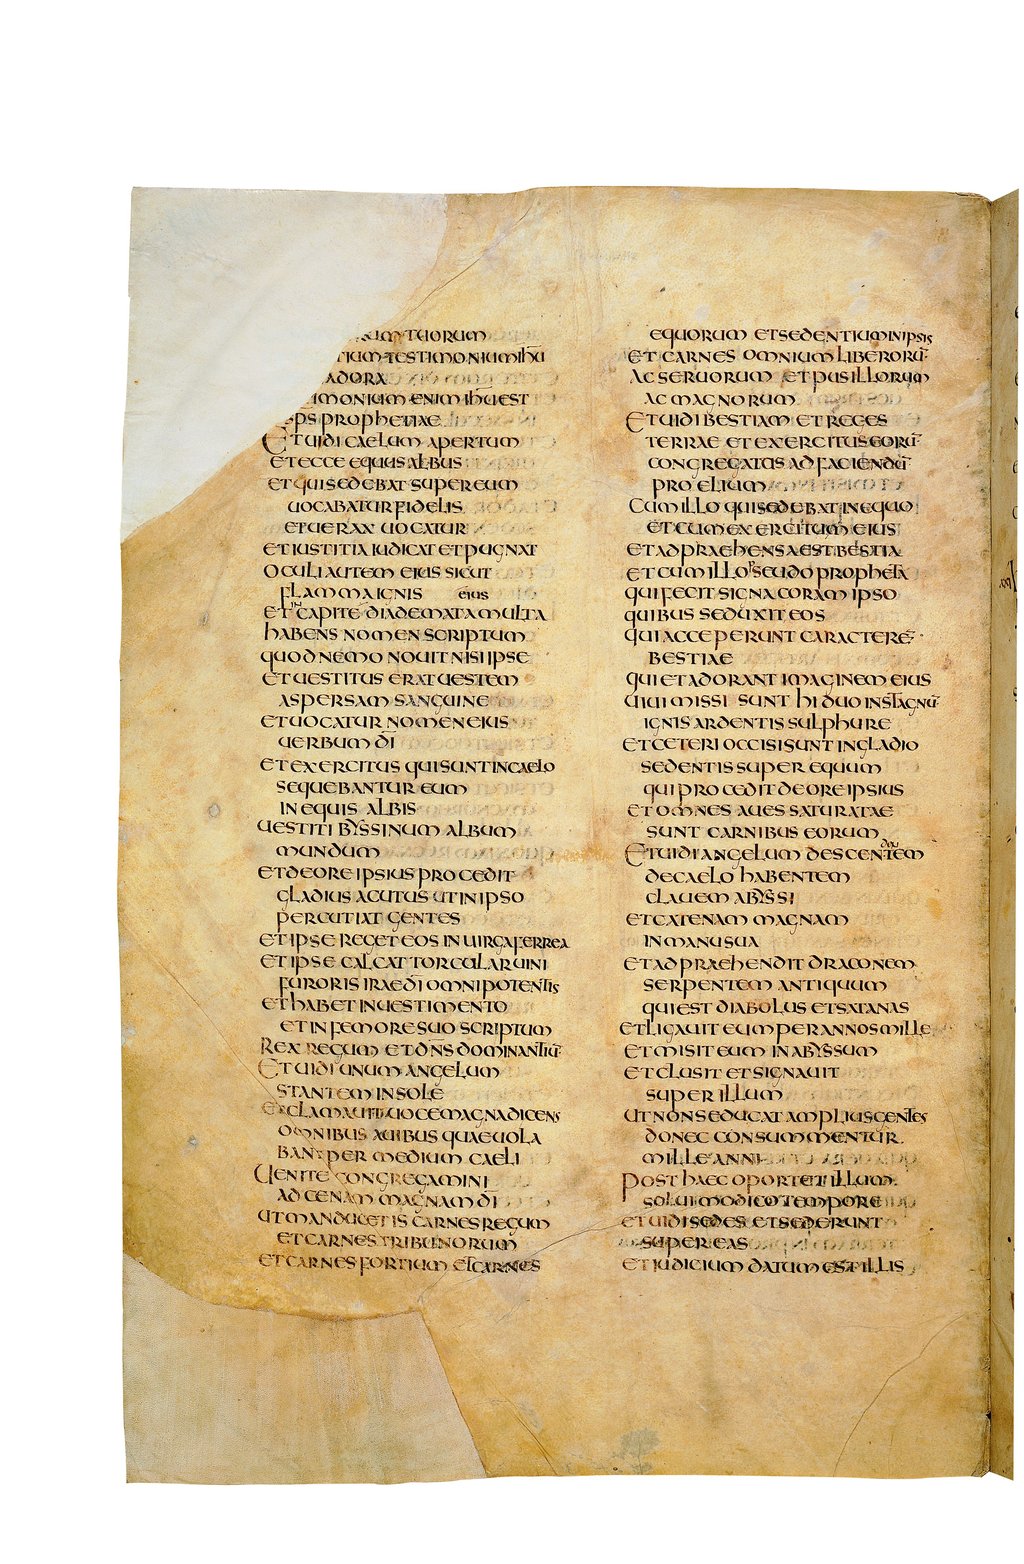 rum tuorum
tium testimonium ih̅u
adora
imonium enim ih̅u est
sp̅s prophetiae
Et uidi caelum apertum
et ecce equus albus
et qui sedebat super eum
uocabatur fidelis
et uerax uocatur
et iustitia iudicat et pugnat
oculi autem eius sicut
flamma ignis eius
et in capite diademata multa
habens nomen scriptum
quod nemo nouit nisi ipse
et uestitus erat uestem
aspersam sanguine
et uocatur nomen eius
uerbum d̅i
et exercitus qui sunt in caelo
sequebantur eum
in equis albis
uestiti byssinum album
mundum
et de ore ipsius procedit
gladius acutus ut in ipso
percutiat gentes
et ipse reget eos in uirga ferrea
et ipse calcat torcular uini
furoris irae d̅i omnipotentis
et habet in uestimento
et in femore suo scriptum
Rex regum et d̅n̅s dominantiu̅
Et uidi unum angelum
stantem in sole
et clamauit uoce magna dicens
omnibus auibus quae uola
bant per medium caeli
Uenite congregamini
ad cenam magnam d̅i
ut manducetis carnes regum
et carnes tribunorum
et carnes fortium et carnes
equorum et sedentium in ipsis
et carnes omnium liberoru̅
ac seruorum et pusillorum
ac magnorum
Et uidi bestiam et reges
terrae et exercitus eoru̅
congregatus ad faciendu̅
proelium
Cum illo qui sedebat in equo
et cum exercitum eius
et adpraehensa est bestia
et cum illo pseudo propheta
qui fecit signa coram ipso
quibus seduxit eos
qui acceperunt caractere̅
bestiae
qui et adorant imaginem eius
uiui missi sunt hi duo in stagnu̅
ignis ardentis sulphure
et ceteri occisi sunt in gladio
sedentis super equum
qui procedit de ore ipsius
et omnes aues saturatae
sunt carnibus eorum
Et uidi angelum descendentem
de caelo habentem
clauem abyssi
et catenam magnam
in manu sua
et adpraehendit draconem
serpentem antiquum
qui est diabolus et satanas
et ligauit eum per annos mille
et misit eum in abyssum
et clusit et signauit
super illum
ut non seducat amplius gentes
donec consummentur
mille anni
Post haec oportet illum
solui modico tempore
et uidi sedes et sederunt
super eas
et iudicium datum est illis